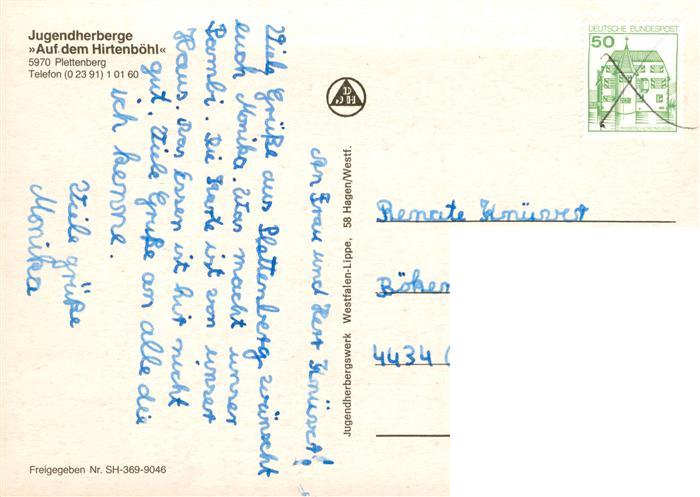 Jugendherberge
»Auf dem Hirtenböhl«
5970 Plettenberg
Telefon (0 23 91) 1 01 60
An Frau und Herr Knüwer!
Viele Grüße aus Plettenberg wünscht
euch Monika. Was macht unser
Bambi. Die Karte ist von unser
Haus. Das Essen ist hir nicht
gut. Viele Grüße an alle die
ich kenne.
Viele grüße
Monika
Freigegeben Nr. SH-369-9046
Jugendherbergswerk Westfalen-Lippe, 58 Hagen/Westf.
DEUTSCHE BUNDESPOST
50
Renate Knüwer
4434